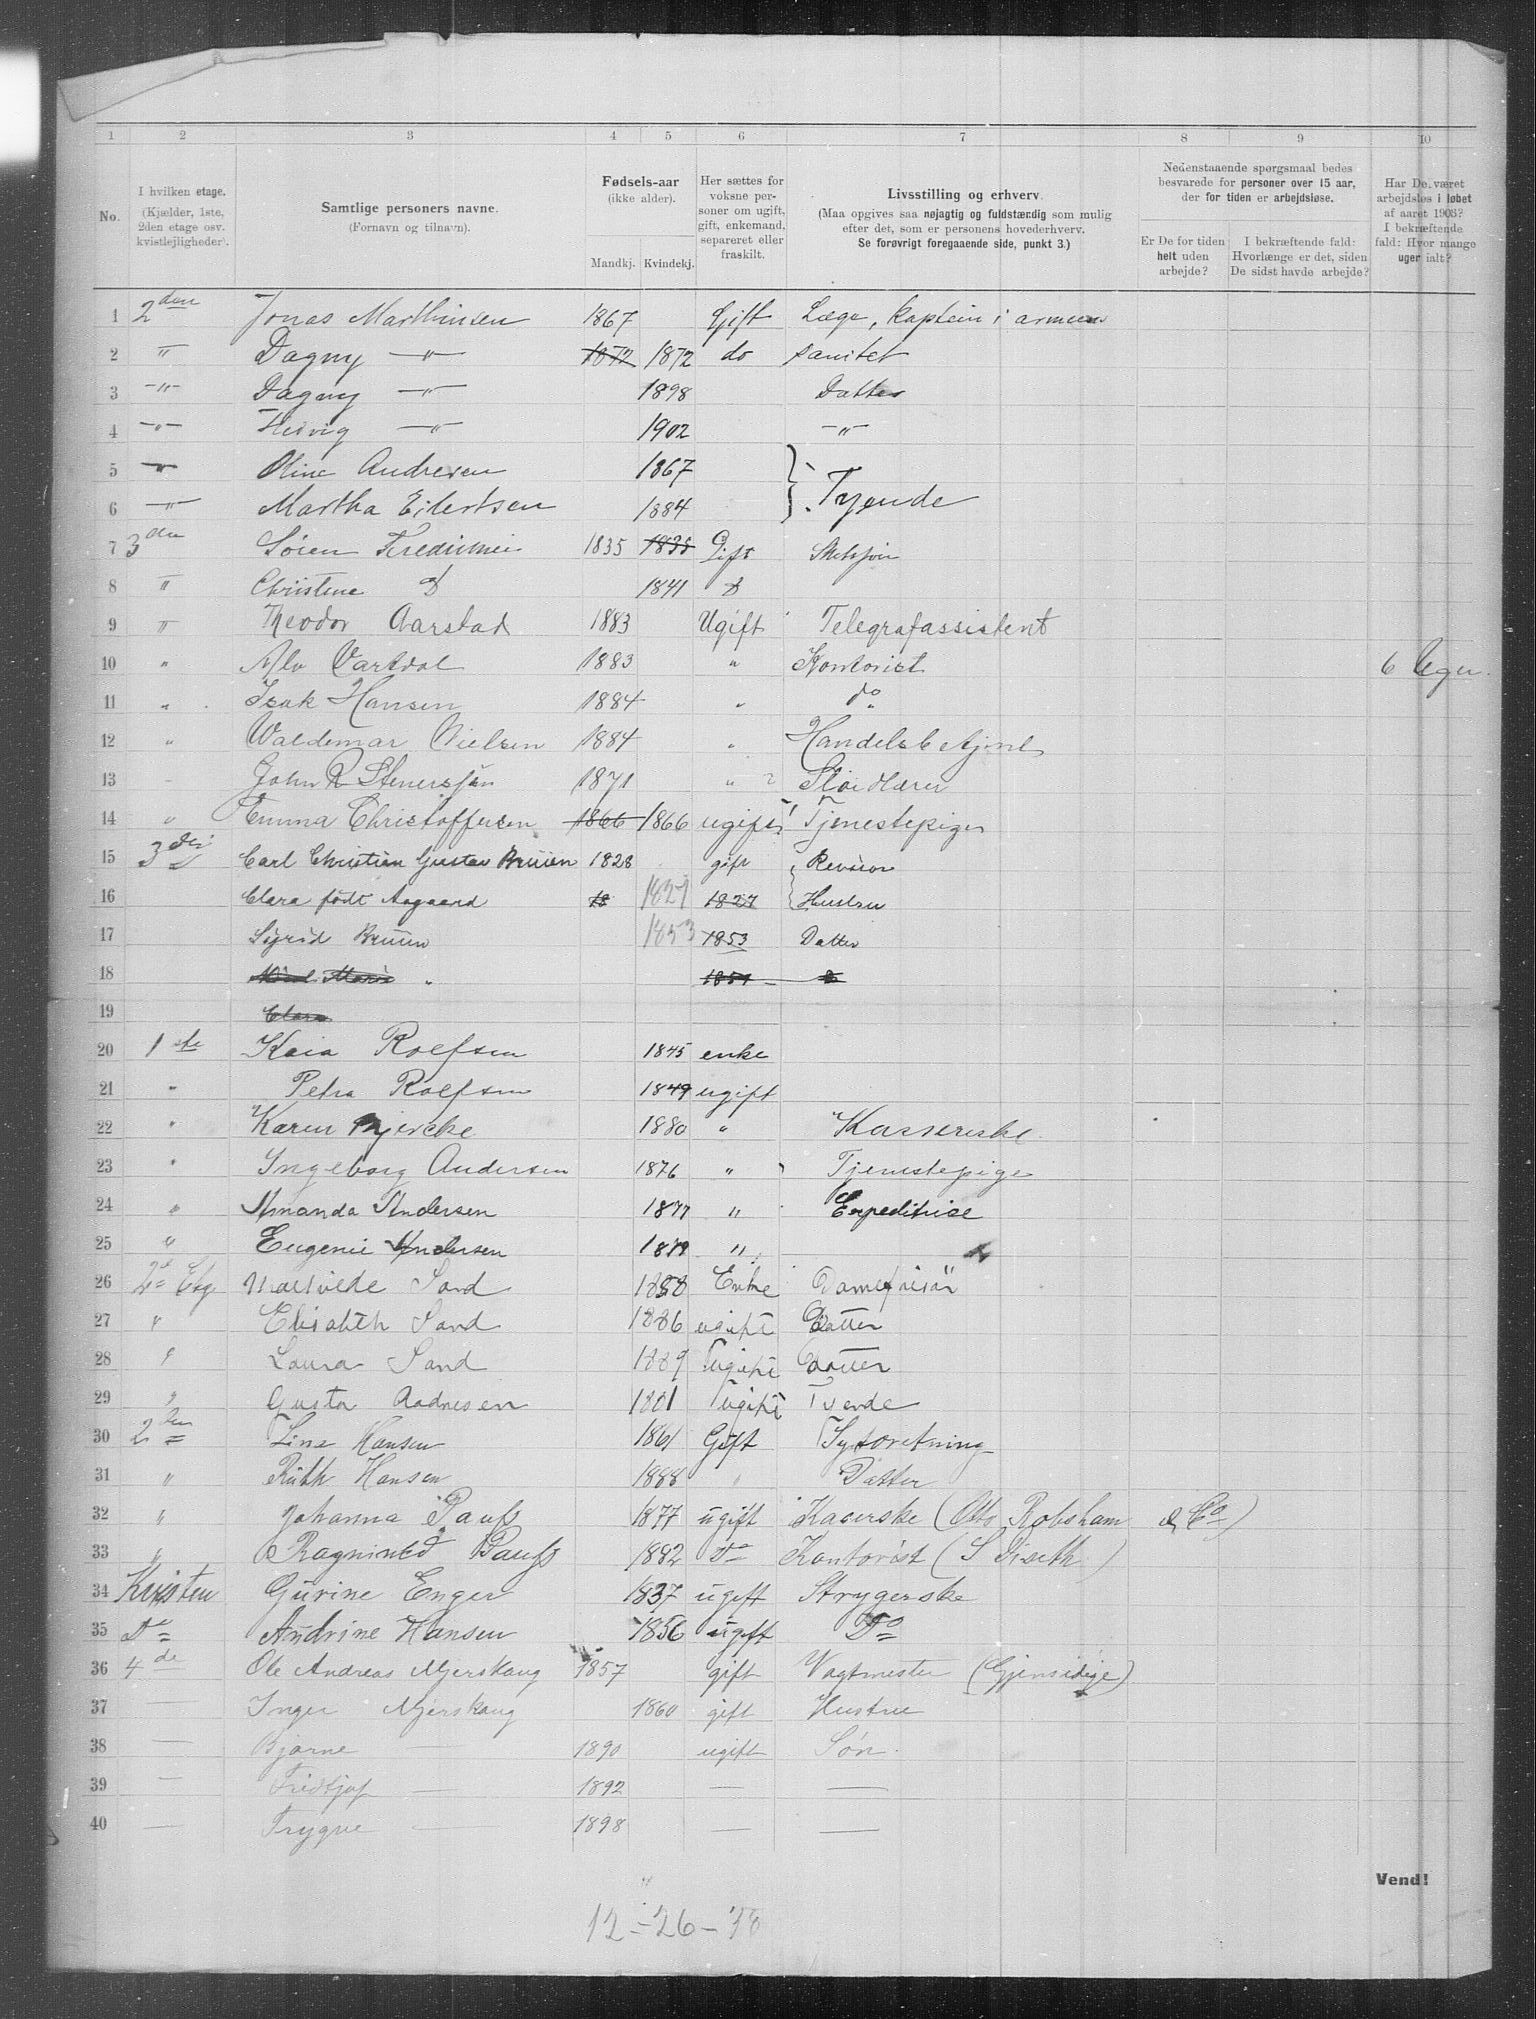 1 2 3 4 5 6 7 8 9 10
No. I hvilken etage. (Kjælder, 1ste, 2den etage osv. kvistleiligheder). Samtlige personers navne. (Fornavn og tilnavn). Fødsels-aar (ikke alder). Mandkj. Kvindekj. Her sættes for voksne personer om ugift, gift, enkemand, separeret eller fraskilt. Livsstilling og erhverv. (Maa opgives saa nøjagtig og fuldstændig som mulig efter det, som er personens hovederhverv. Se forøvrigt foregaaende side, punkt 3.) Nedenstaaende spørgsmaal bedes besvarede for personer over 15 aar, der for tiden er arbejdsløse. Er De for tiden helt uden arbejde? I bekræftende fald: Hvorlænge er det, siden De sidst havde arbejde? Har De været arbejdsløs i løbet af aaret 1903? I bekræftende fald: Hvor mange uger ialt?
1 2den Jonas Marthinsen 1867 Gift Læge, kaptein i armeens
2 " Dagny —"— 1872 1872 do sanitet
3 —"— Dagny —"— 1898 Datter
4 —"— Hedvig —"— 1902 —"—
5 —"— Oline Andresen 1867 } Tyende
6 —"— Martha Eilertsen 1884
7 3die Sören 1835 1835 Gift
8 " Christene D 1841 D
9 " Theodor Aarstad 1883 Ugift Telegrafassistent
10 " Alv Vartdal 1883 " Kontorist 6 Uger.
11 " Isak Hansen 1884 " do
12 " Waldemar Nielsen 1884 " Handelsbetjent
13 - John R Stenersjön 1871 "
14 " Emma Christoffersen 1866 1866 ugift Tjenestepige
15 3die Carl Christian Gustav Bruun 1828 gift Revisor
16 Clara født Aagaard 18 1827 1827 Hustru
17 Sigrid Bruun 1853 1853 Datter
18 Marie "
19 Clara
20 1ste Kaia Rolfsen 1845 enke
21 " Petra Rolfsen 1849 ugift
22 " Karen Bjercke 1880 " Kassererske
23 " Ingeborg Andersen 1876 " Tjenestepige
24 " Amanda Andersen 1877 " Expeditrise
25 " Eugenie Andersen 1879 "
26 2d Etg. Mathilde Sand 1858 Enke Damefrisör
27 " Elisabeth Sand 1886 ugift Datter
28 " Laura Sand 1889 ugift Datter
29 " Gusta Andresen 1881 ugift Tyende
30 2den Lina Hansen 1861 Gift Syforretning
31 " Ruth Hansen 1888 " Datter
32 " Johanna Pauss 1877 ugift Kaserske (Otto Robsham & Co)
33 " Ragnhild Pauss 1882 Do Kontorist (S Diseth)
34 Kvisten Gurine Enger 1837 ugift Strygerske
35 Do Andrine Hansen 1856 ugift Do
36 4de Ole Andreas Mjerskaug 1857 gift Vagtmester (Gjensidige)
37 — Inger Mjerskaug 1860 gift Hustru
38 — Bjarne — 1890 ugift Søn.
39 — Fridtjof — 1892 — —
40 — Trygve — 1898 — —
Vend!
12-26-38